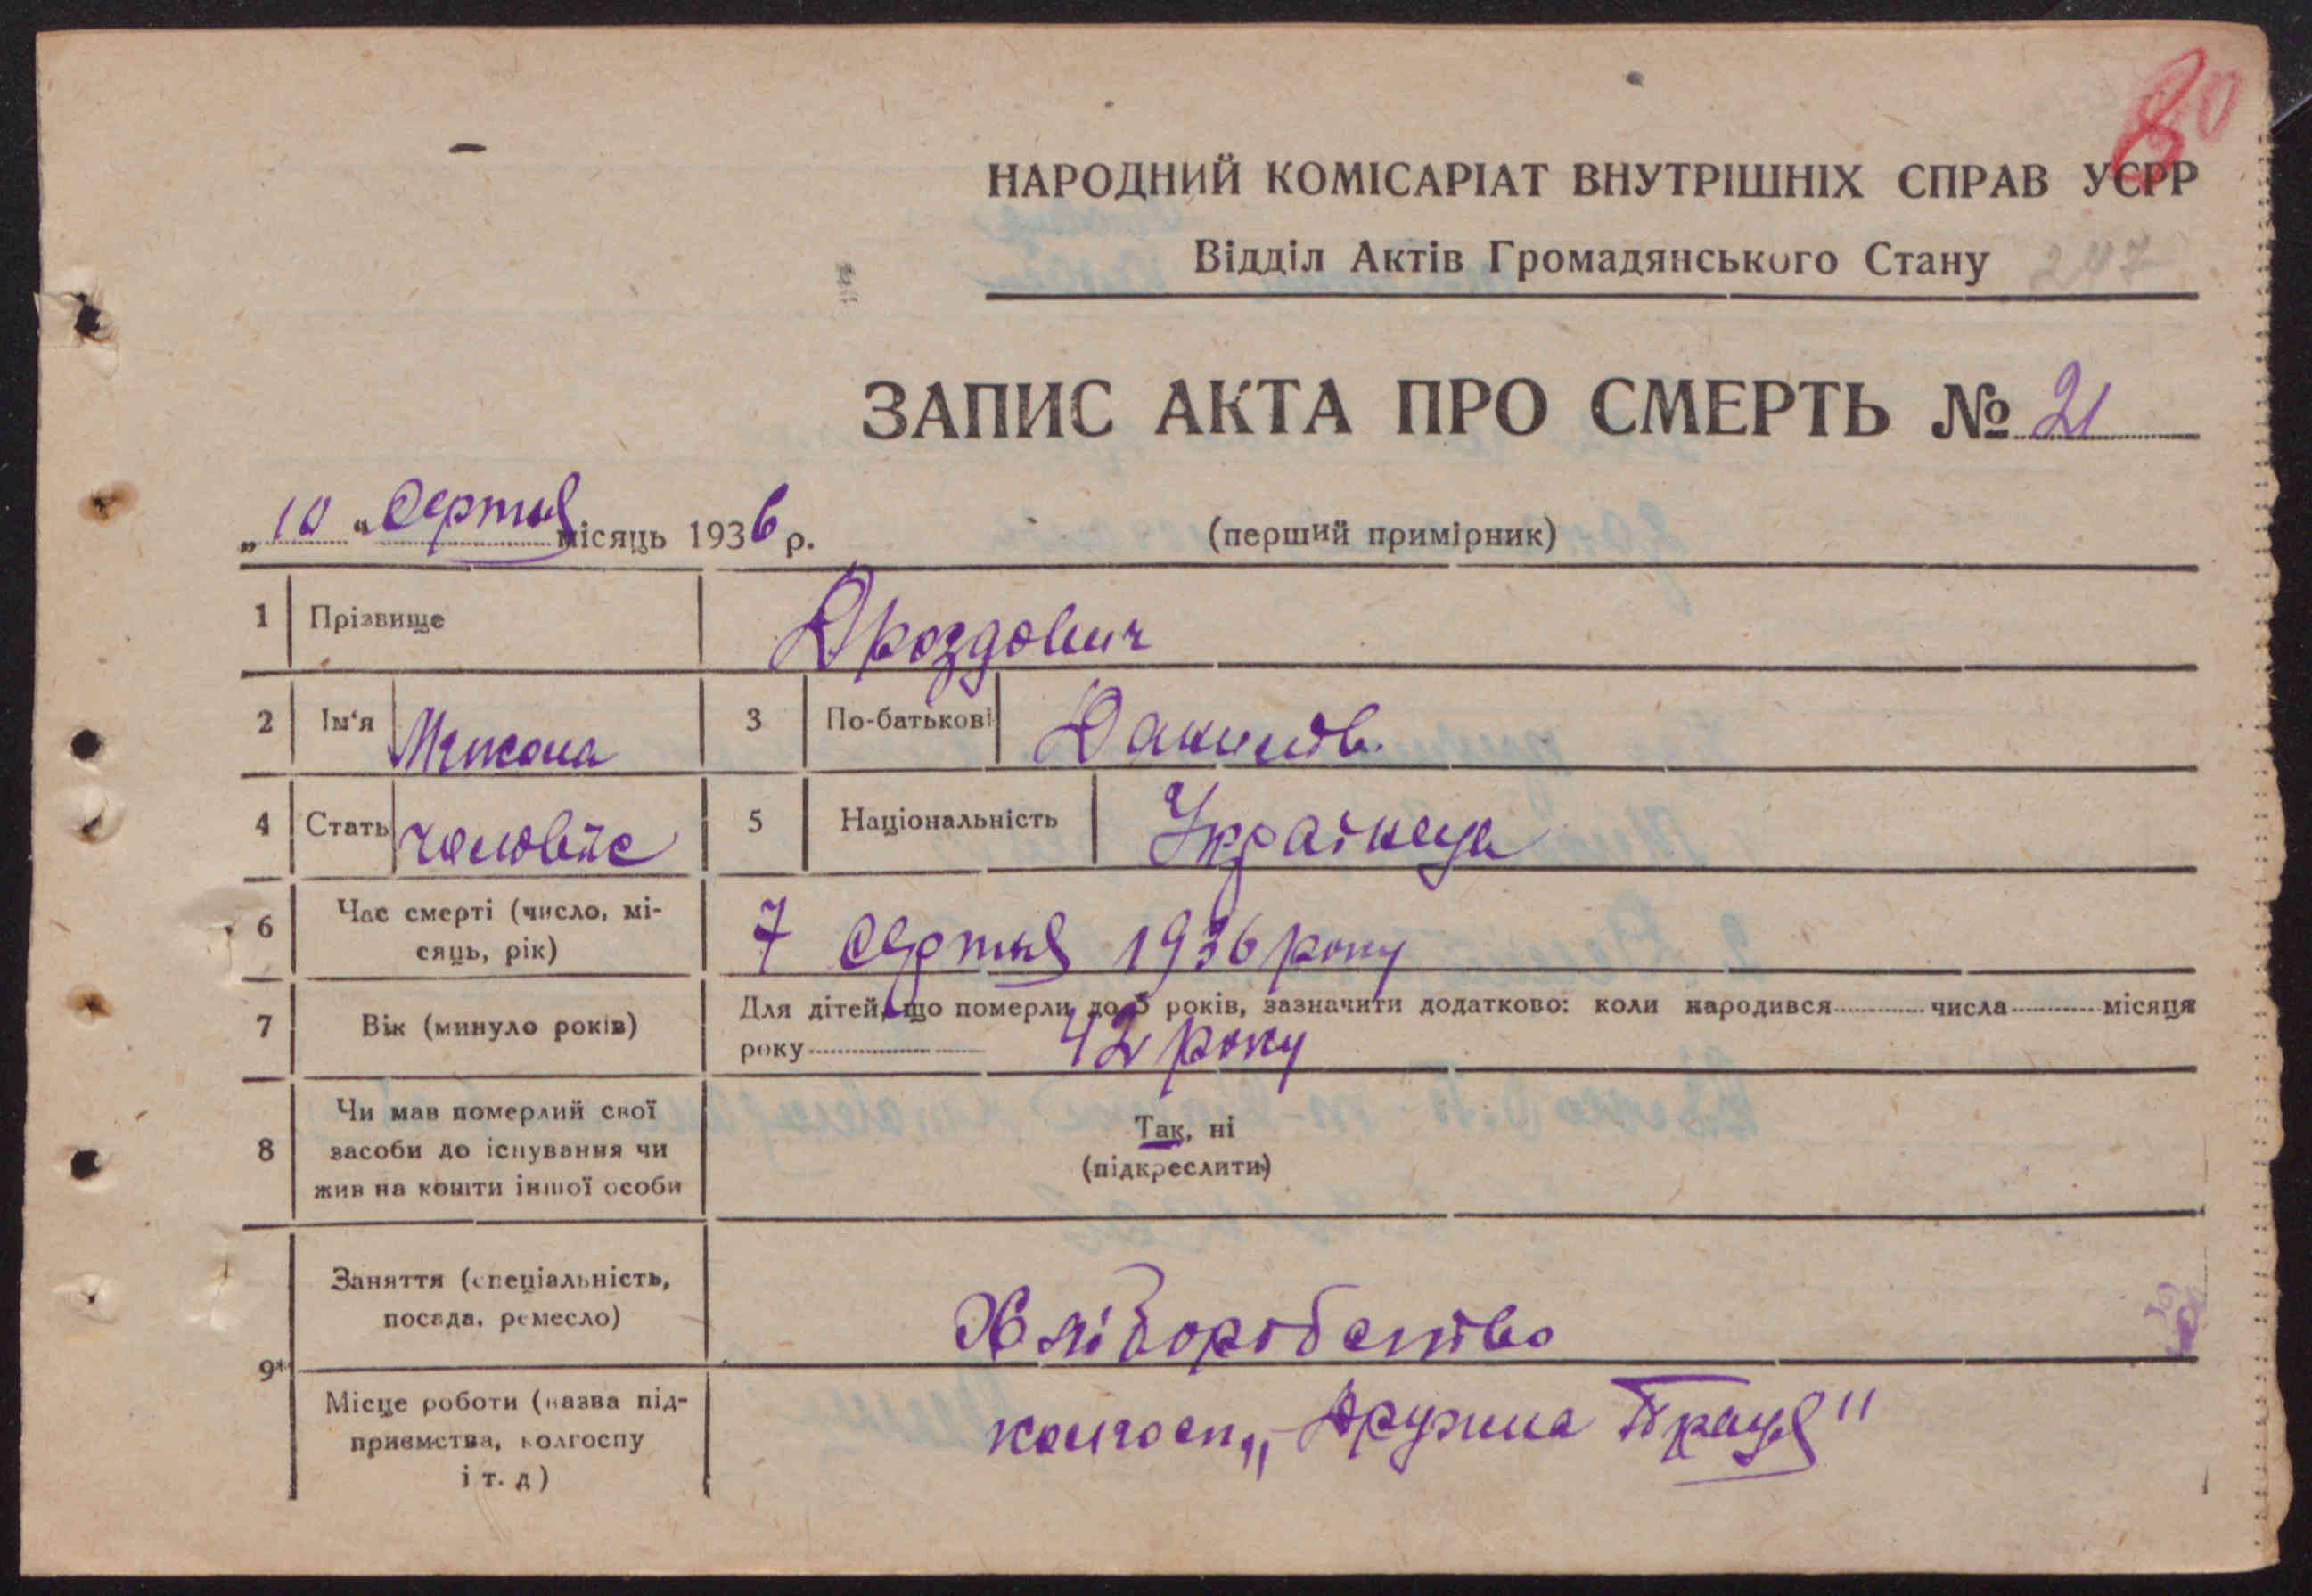 80
НАРОДНИЙ КОМІСАРІАТ ВНУТРІШНІХ СПРАВ УСРР
Відділ Актів Громадянського Стану 247
ЗАПИС АКТА ПРО СМЕРТЬ № 21
„10“ Серпня місяць 1936 р. (перший примірник)
1 Прізвище Дроздович
2 Ім'я 3 По-батькові Данилов.
4 Стать чоловік 5 Національність Украінець
6 Час смерті (число, мі-
сяць, рік) 7 Серпня 1936 року
7 Вік (минуло років) Для дітей, що померли до 5 років, зазначити додатково: коли народився числа місяця
року 42 року
8 Чи мав померлий свої
засоби до існування чи
жив на кошти іншої особи
Так, ні
(підкреслити)
9* Заняття (спеціальність,
посада, ремесло) Хліборобство
Місце роботи (назва під-
приємства, колгоспу
і т. д) колгосп „Дружна Праця"